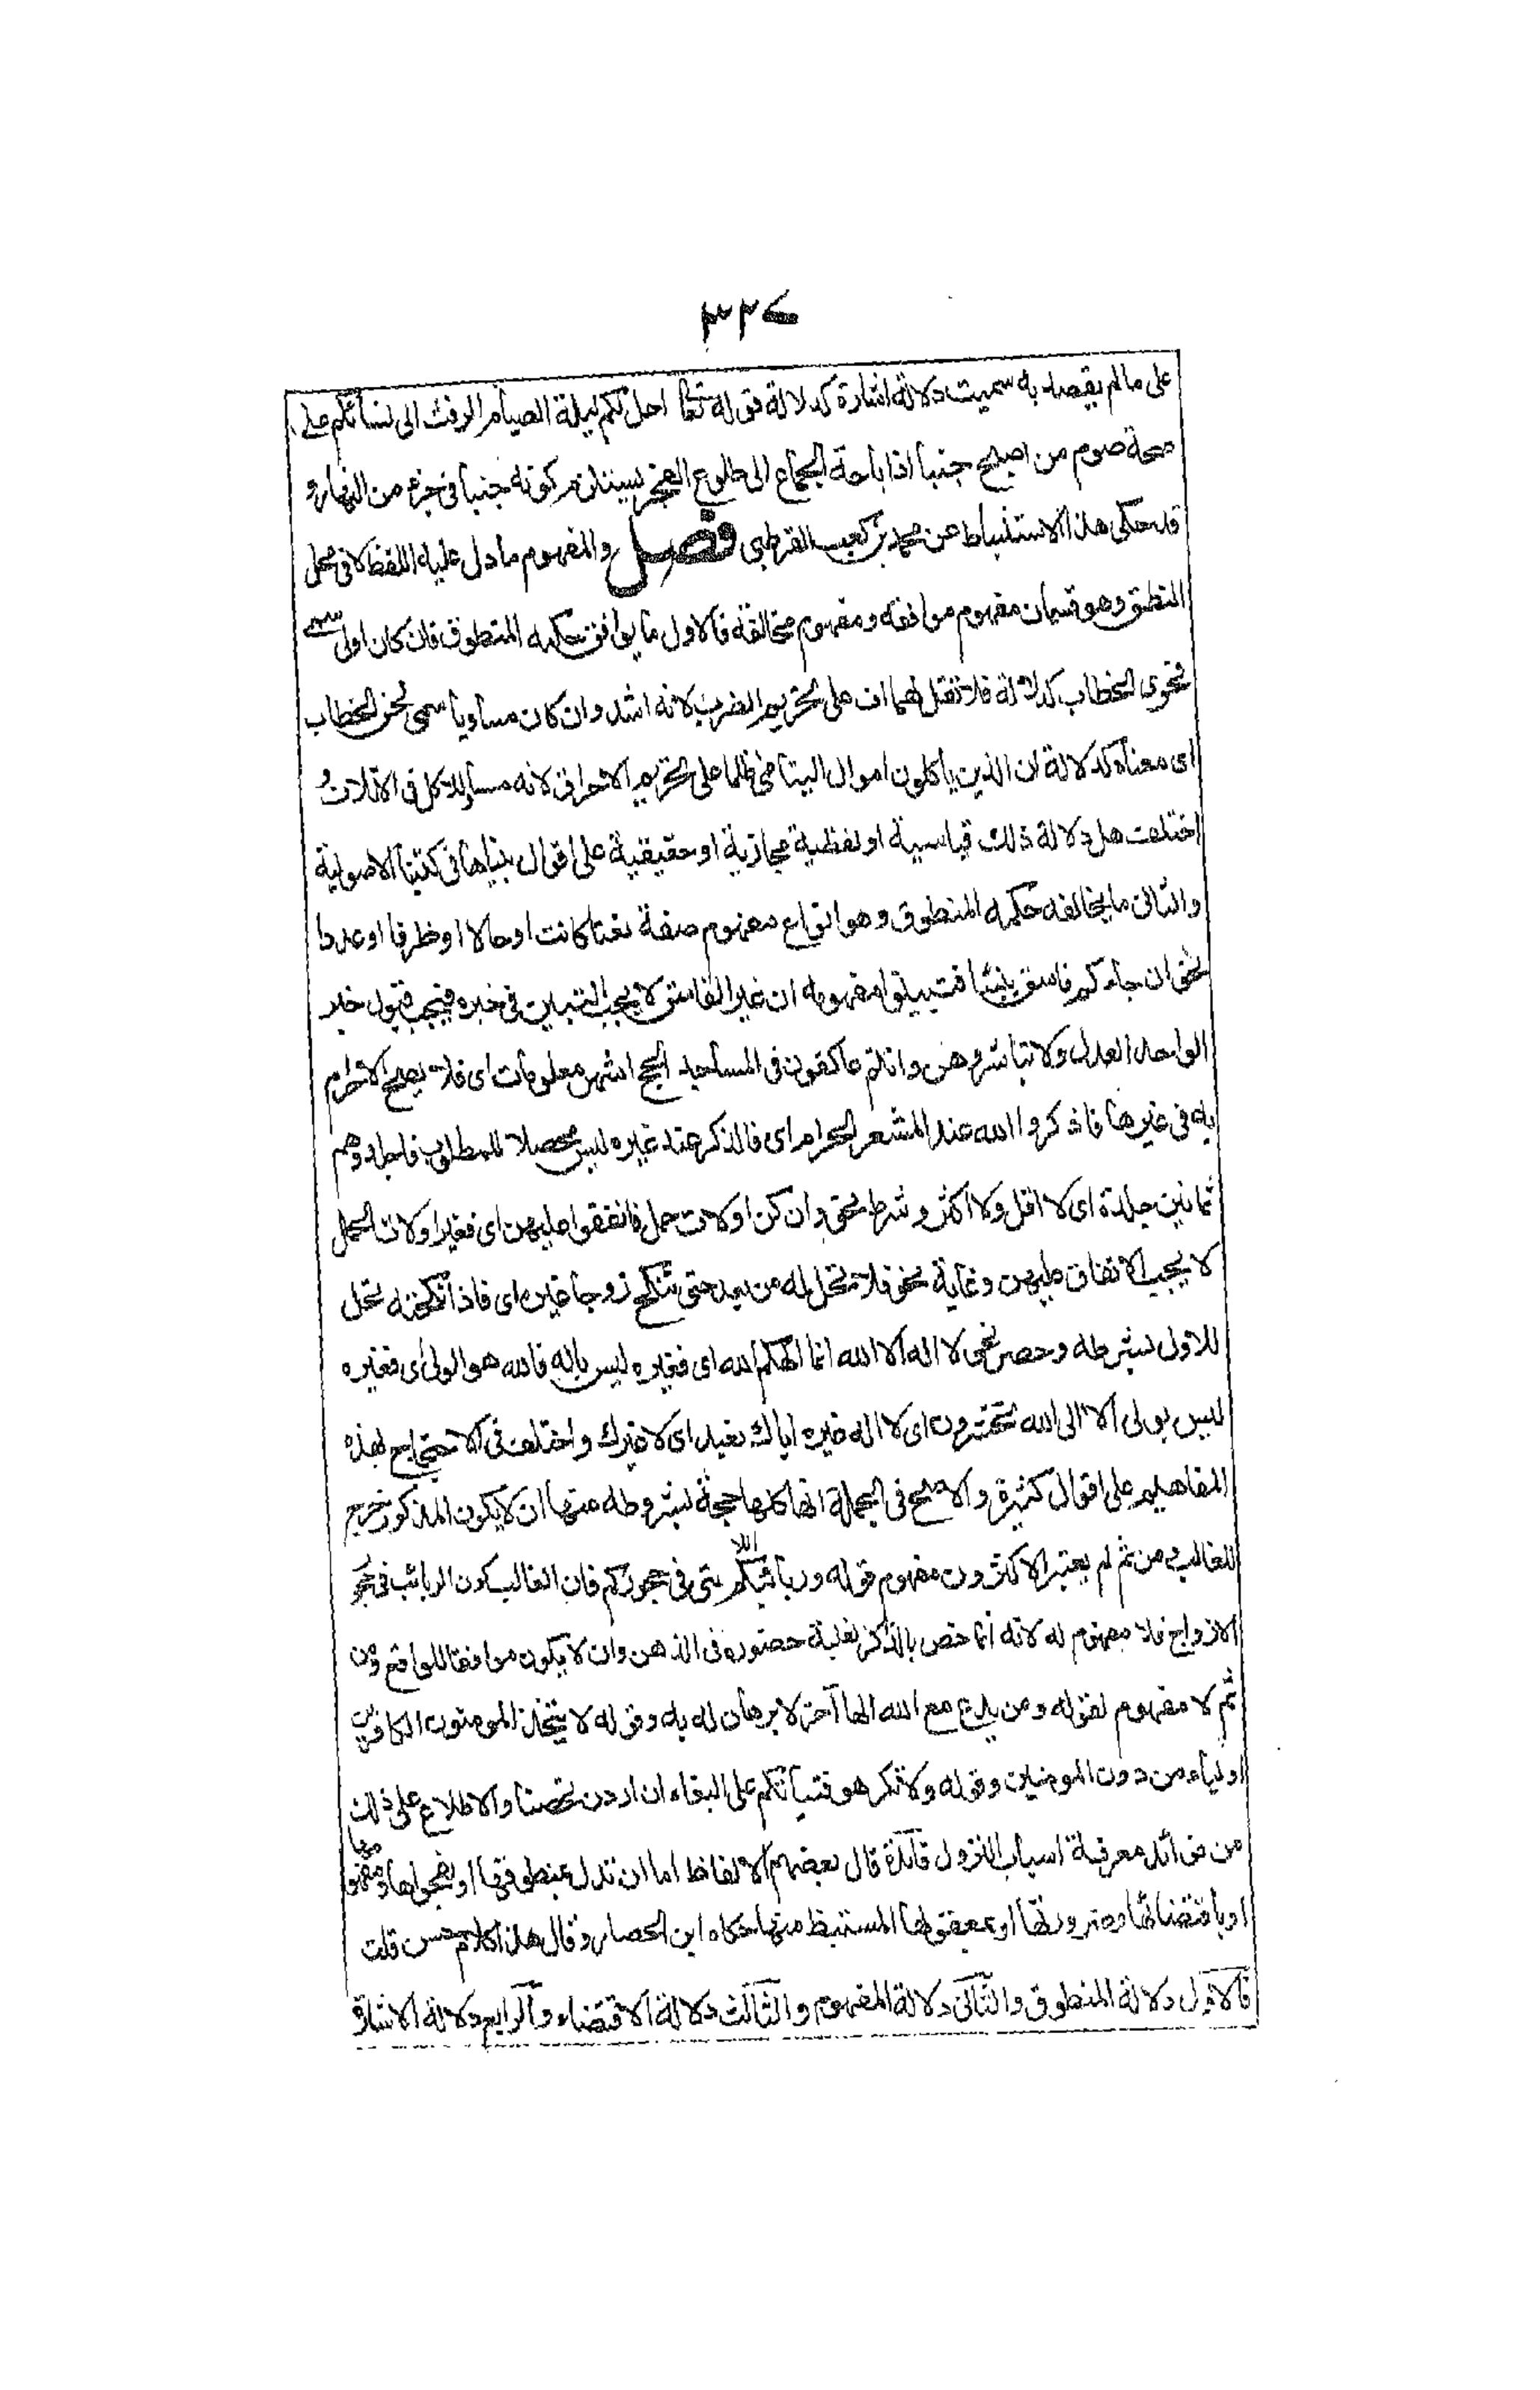 ٣٢٧
على ما لم يقصد به سميت دلالة اشارة كدلالة قوله تعا احل لكم ليلة الصيام الرفث الى نسائكم على
صحة صوم من اصبح جنبا اذ اباحة الجماع الى طلوع الفجر يستلزم كونه جنبا فى جزء من النهار و
قد حكى هذا الاستنباط عن محمد بن كعب القرظى فصل والمفهوم ما دل عليه اللفظ لا فى محل
النطق وهو قسمان مفهوم موافقه ومفهوم مخالفة فالاول ما يوافق حكمه المنطوق فان كان اولى سمى
فحوى الخطاب كدلالة فلا تقل لهما اف على تحريم الضرب لانه اشد وان كان مساويا سمى لحن الخطاب
اى معناه كدلالة ان الذين ياكلون اموال اليتامى ظلما على تحريم الاحراق لانه مساو للاكل فى الاتلاف و
اختلف هل دلالة ذلك قياسية او لفظية مجازية او حقيقية على اقوال بيناها فى كتبنا الاصولية
والثانى ما يخالف حكمه المنطوق وهو انواع مفهوم صفة نعتا كانت او حالا او ظرفا او عددا
نحو ان جاءكم فاسق بنبا فتبينوا مفهومه ان غير الفاسق لا يجب التبين فى خبره فيجب قبول خبر
الواحد العدل ولا تباشروهن وانتم عاكفون فى المساجد الحج اشهر معلومات اى فلا يصح الاحرام
به فى غيرها فاذكروا الله عند المشعر الحرام اى فالذكر عند غيره ليس محصلا للمطلوب فاجلدوهم
ثمانين جلدة اى لا اقل ولا اكثر وشرط نحو وان كن اولات حمل فانفقوا عليهن اى فغير اولات الحمل
لا يجب الانفاق عليهن وغاية نحو فلا تحل له من بعد حتى تنكح زوجا غيره اى فاذا نكحته تحل
للاول بشرطه وحصر نحو لا اله الا الله انما الهكم الله اى فغيره ليس باله فالله هو الولى اى فغيره
ليس بولى لا الى الله تحشرون اى لا اله غيره اياك نعبد اى لا غيرك واختلف فى الاحتجاج بهذه
المفاهيم على اقوال كثيرة والاصح فى الجملة انها كلها حجة بشروطه منها ان لا يكون المذكور خرج
للغالب ومن ثم لم يعتبر الاكثرون مفهوم قوله وربائبكم اللا تى فى حجوركم فان الغالب كون الربائب فى حجو
الازواج فلا مفهوم له لانه انما خص بالذكر لغلبة حضوره فى الذهن وان لا يكون موافقا للواقع ومن
ثم لا مفهوم لقوله ومن يدع مع الله الها آخر لا برهان له به وقوله لا يتخذ المومنون الكافرين
اولياء من دون المومنين وقوله ولا تكرهوا فتياتكم على البغاء ان اردن تحصنا والاطلاع على ذلك
من فوائد معرفة اسباب النزول فائدة قال بعضهم الالفاظ اما ان تدل بمنطوقها او بفحواها ومفهو مها
او باقتضائها وضرورتها او بمعقولها المستنبط منها حكاه ابن الحصار وقال هذا كلام حسن قلت
فالاول دلالة المنطوق والثانى دلالة المفهوم والثالث دلالة الاقتضاء والرابع دلالة الاشارة